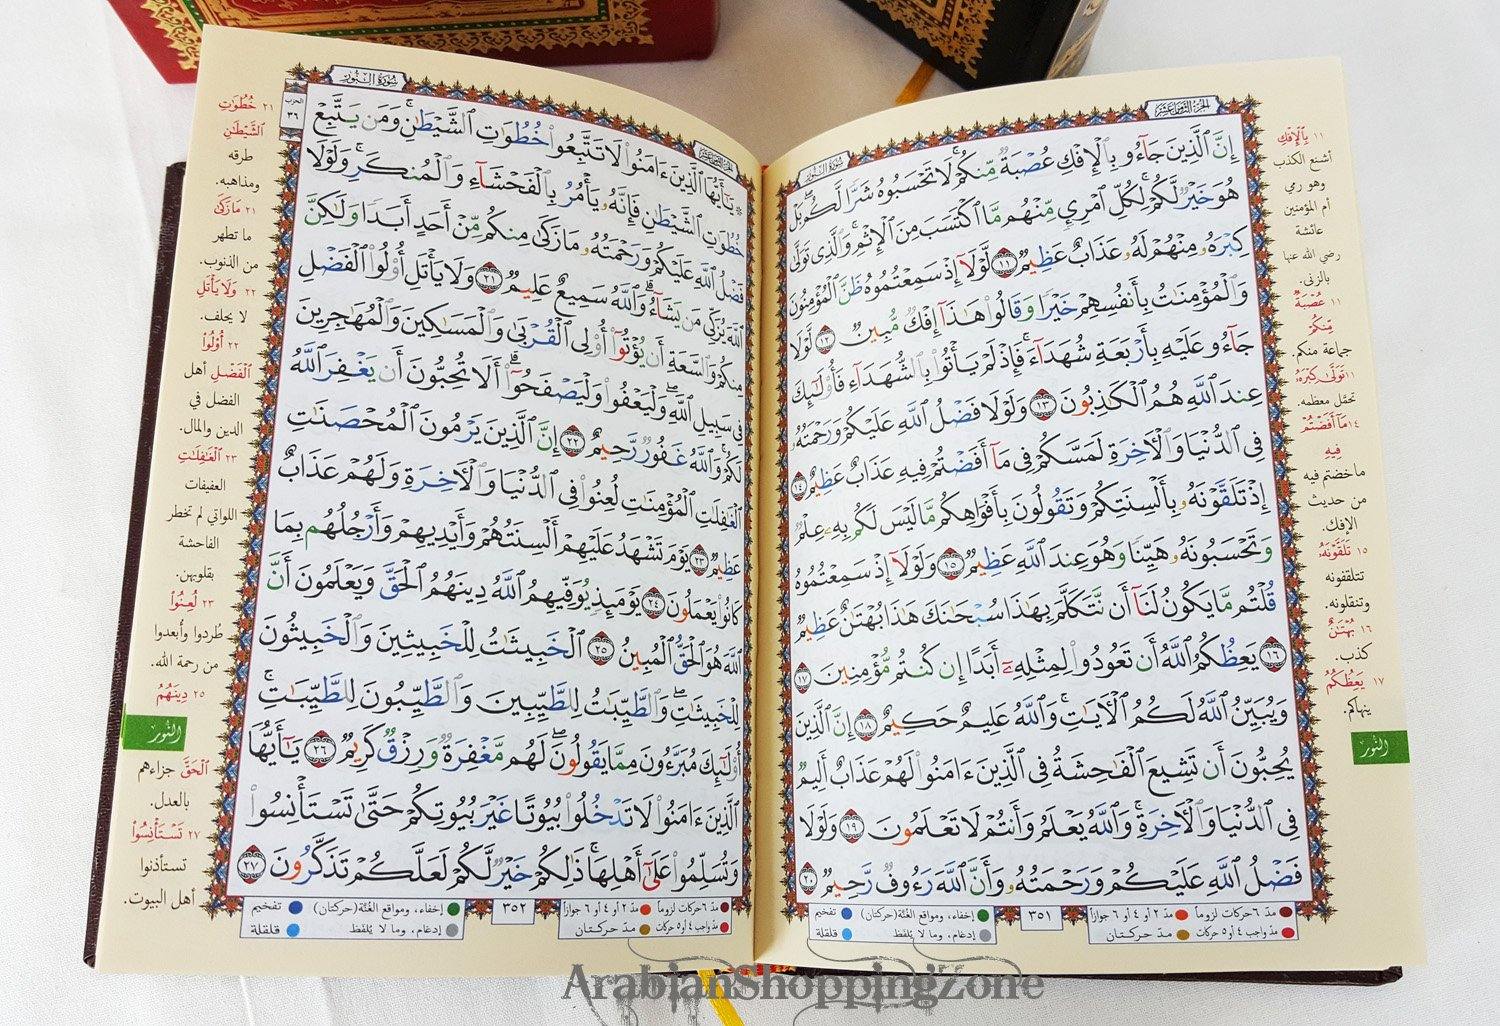 الجزء الثامن عشر
سورة النور
إِنَّ ٱلَّذِينَ جَآءُو بِٱلْإِفْكِ عُصْبَةٌ مِّنكُمْ ۚ لَا تَحْسَبُوهُ شَرًّا لَّكُم ۖ بَلْ
هُوَ خَيْرٌ لَّكُمْ ۚ لِكُلِّ ٱمْرِئٍ مِّنْهُم مَّا ٱكْتَسَبَ مِنَ ٱلْإِثْمِ ۚ وَٱلَّذِى تَوَلَّىٰ
كِبْرَهُۥ مِنْهُمْ لَهُۥ عَذَابٌ عَظِيمٌ ١١ لَّوْلَآ إِذْ سَمِعْتُمُوهُ ظَنَّ ٱلْمُؤْمِنُونَ
وَٱلْمُؤْمِنَٰتُ بِأَنفُسِهِمْ خَيْرًا وَقَالُوا۟ هَٰذَآ إِفْكٌ مُّبِينٌ ١٢ لَّوْلَا
جَآءُو عَلَيْهِ بِأَرْبَعَةِ شُهَدَآءَ ۚ فَإِذْ لَمْ يَأْتُوا۟ بِٱلشُّهَدَآءِ فَأُو۟لَٰٓئِكَ
عِندَ ٱللَّهِ هُمُ ٱلْكَٰذِبُونَ ١٣ وَلَوْلَا فَضْلُ ٱللَّهِ عَلَيْكُمْ وَرَحْمَتُهُۥ
فِى ٱلدُّنْيَا وَٱلْءَاخِرَةِ لَمَسَّكُمْ فِى مَآ أَفَضْتُمْ فِيهِ عَذَابٌ عَظِيمٌ ١٤
إِذْ تَلَقَّوْنَهُۥ بِأَلْسِنَتِكُمْ وَتَقُولُونَ بِأَفْوَاهِكُم مَّا لَيْسَ لَكُم بِهِۦ عِلْمٌ
وَتَحْسَبُونَهُۥ هَيِّنًا وَهُوَ عِندَ ٱللَّهِ عَظِيمٌ ١٥ وَلَوْلَآ إِذْ سَمِعْتُمُوهُ
قُلْتُم مَّا يَكُونُ لَنَآ أَن نَّتَكَلَّمَ بِهَٰذَا سُبْحَٰنَكَ هَٰذَا بُهْتَٰنٌ عَظِيمٌ
١٦ يَعِظُكُمُ ٱللَّهُ أَن تَعُودُوا۟ لِمِثْلِهِۦٓ أَبَدًا إِن كُنتُم مُّؤْمِنِينَ ١٧
وَيُبَيِّنُ ٱللَّهُ لَكُمُ ٱلْءَايَٰتِ ۚ وَٱللَّهُ عَلِيمٌ حَكِيمٌ ١٨ إِنَّ ٱلَّذِينَ
يُحِبُّونَ أَن تَشِيعَ ٱلْفَٰحِشَةُ فِى ٱلَّذِينَ ءَامَنُوا۟ لَهُمْ عَذَابٌ أَلِيمٌ
فِى ٱلدُّنْيَا وَٱلْءَاخِرَةِ ۚ وَٱللَّهُ يَعْلَمُ وَأَنتُمْ لَا تَعْلَمُونَ ١٩ وَلَوْلَا
فَضْلُ ٱللَّهِ عَلَيْكُمْ وَرَحْمَتُهُۥ وَأَنَّ ٱللَّهَ رَءُوفٌ رَّحِيمٌ ٢٠
١١ بِٱلْإِفْكِ
أشنع الكذب
وهو رمي
أم المؤمنين
عائشة
رضي الله عنها
بالزنى.
١١ عُصْبَةٌ
مِّنكُمْ
جماعة منكم.
١١ تَوَلَّىٰ كِبْرَهُ
تحمّل معظمه.
١٤ مَآ أَفَضْتُمْ
فِيهِ
ما خضتم فيه
من حديث
الإفك.
١٥ تَلَقَّوْنَهُۥ
تتلقفونه
وتنقلونه.
١٦ بُهْتَٰنٌ
كذب.
١٧ يَعِظُكُمُ
ينهاكم.
النور
مدّ ٦ حركات لزوماً
مدّ ٢ أو ٤ أو ٦ جوازاً
مدّ واجب ٤ أو ٥ حركات
مدّ حركتان
٣٥١
إخفاء، ومواقع الغُنَّة (حركتان)
تفخيم
إدغام، وما لا يُلفَظ
قلقلة
الجزء الثامن عشر
سورة النور
الحزب
٣٦
يَٰٓأَيُّهَا ٱلَّذِينَ ءَامَنُوا۟ لَا تَتَّبِعُوا۟ خُطُوَٰتِ ٱلشَّيْطَٰنِ ۚ وَمَن يَتَّبِعْ
خُطُوَٰتِ ٱلشَّيْطَٰنِ فَإِنَّهُۥ يَأْمُرُ بِٱلْفَحْشَآءِ وَٱلْمُنكَرِ ۚ وَلَوْلَا
فَضْلُ ٱللَّهِ عَلَيْكُمْ وَرَحْمَتُهُۥ مَا زَكَىٰ مِنكُم مِّنْ أَحَدٍ أَبَدًا وَلَٰكِنَّ
ٱللَّهَ يُزَكِّى مَن يَشَآءُ ۗ وَٱللَّهُ سَمِيعٌ عَلِيمٌ ٢١ وَلَا يَأْتَلِ أُو۟لُوا۟ ٱلْفَضْلِ
مِنكُمْ وَٱلسَّعَةِ أَن يُؤْتُوٓا۟ أُو۟لِى ٱلْقُرْبَىٰ وَٱلْمَسَٰكِينَ وَٱلْمُهَٰجِرِينَ
فِى سَبِيلِ ٱللَّهِ ۖ وَلْيَعْفُوا۟ وَلْيَصْفَحُوٓا۟ ۗ أَلَا تُحِبُّونَ أَن يَغْفِرَ ٱللَّهُ
لَكُمْ ۗ وَٱللَّهُ غَفُورٌ رَّحِيمٌ ٢٢ إِنَّ ٱلَّذِينَ يَرْمُونَ ٱلْمُحْصَنَٰتِ
ٱلْغَٰفِلَٰتِ ٱلْمُؤْمِنَٰتِ لُعِنُوا۟ فِى ٱلدُّنْيَا وَٱلْءَاخِرَةِ وَلَهُمْ عَذَابٌ
عَظِيمٌ ٢٣ يَوْمَ تَشْهَدُ عَلَيْهِمْ أَلْسِنَتُهُمْ وَأَيْدِيهِمْ وَأَرْجُلُهُم بِمَا
كَانُوا۟ يَعْمَلُونَ ٢٤ يَوْمَئِذٍ يُوَفِّيهِمُ ٱللَّهُ دِينَهُمُ ٱلْحَقَّ وَيَعْلَمُونَ أَنَّ
ٱللَّهَ هُوَ ٱلْحَقُّ ٱلْمُبِينُ ٢٥ ٱلْخَبِيثَٰتُ لِلْخَبِيثِينَ وَٱلْخَبِيثُونَ
لِلْخَبِيثَٰتِ ۖ وَٱلطَّيِّبَٰتُ لِلطَّيِّبِينَ وَٱلطَّيِّبُونَ لِلطَّيِّبَٰتِ ۚ
أُو۟لَٰٓئِكَ مُبَرَّءُونَ مِمَّا يَقُولُونَ ۖ لَهُم مَّغْفِرَةٌ وَرِزْقٌ كَرِيمٌ ٢٦ يَٰٓأَيُّهَا
ٱلَّذِينَ ءَامَنُوا۟ لَا تَدْخُلُوا۟ بُيُوتًا غَيْرَ بُيُوتِكُمْ حَتَّىٰ تَسْتَأْنِسُوا۟
وَتُسَلِّمُوا۟ عَلَىٰٓ أَهْلِهَا ۚ ذَٰلِكُمْ خَيْرٌ لَّكُمْ لَعَلَّكُمْ تَذَكَّرُونَ ٢٧
٢١ خُطُوَٰتِ
ٱلشَّيْطَٰنِ
طرقه
ومذاهبه.
٢١ مَا زَكَىٰ
ما تطهر
من الذنوب.
٢٢ وَلَا يَأْتَلِ
لا يحلف.
٢٢ أُو۟لُوا۟
ٱلْفَضْلِ أهل
الفضل في
الدين والمال.
٢٣ ٱلْغَٰفِلَٰتِ
العفيفات
اللواتي لم تخطر
الفاحشة
بقلوبهن.
٢٣ لُعِنُوا۟
طُردوا وأبعدوا
من رحمة الله.
٢٥ دِينَهُمُ
النور
ٱلْحَقَّ جزاءهم
بالعدل.
٢٧ تَسْتَأْنِسُوا۟
تستأذنوا
أهل البيوت.
مدّ ٦ حركات لزوماً
مدّ ٢ أو ٤ أو ٦ جوازاً
مدّ واجب ٤ أو ٥ حركات
مدّ حركتان
٣٥٢
إخفاء، ومواقع الغُنَّة (حركتان)
تفخيم
إدغام، وما لا يُلفَظ
قلقلة
ArabianShoppingZone